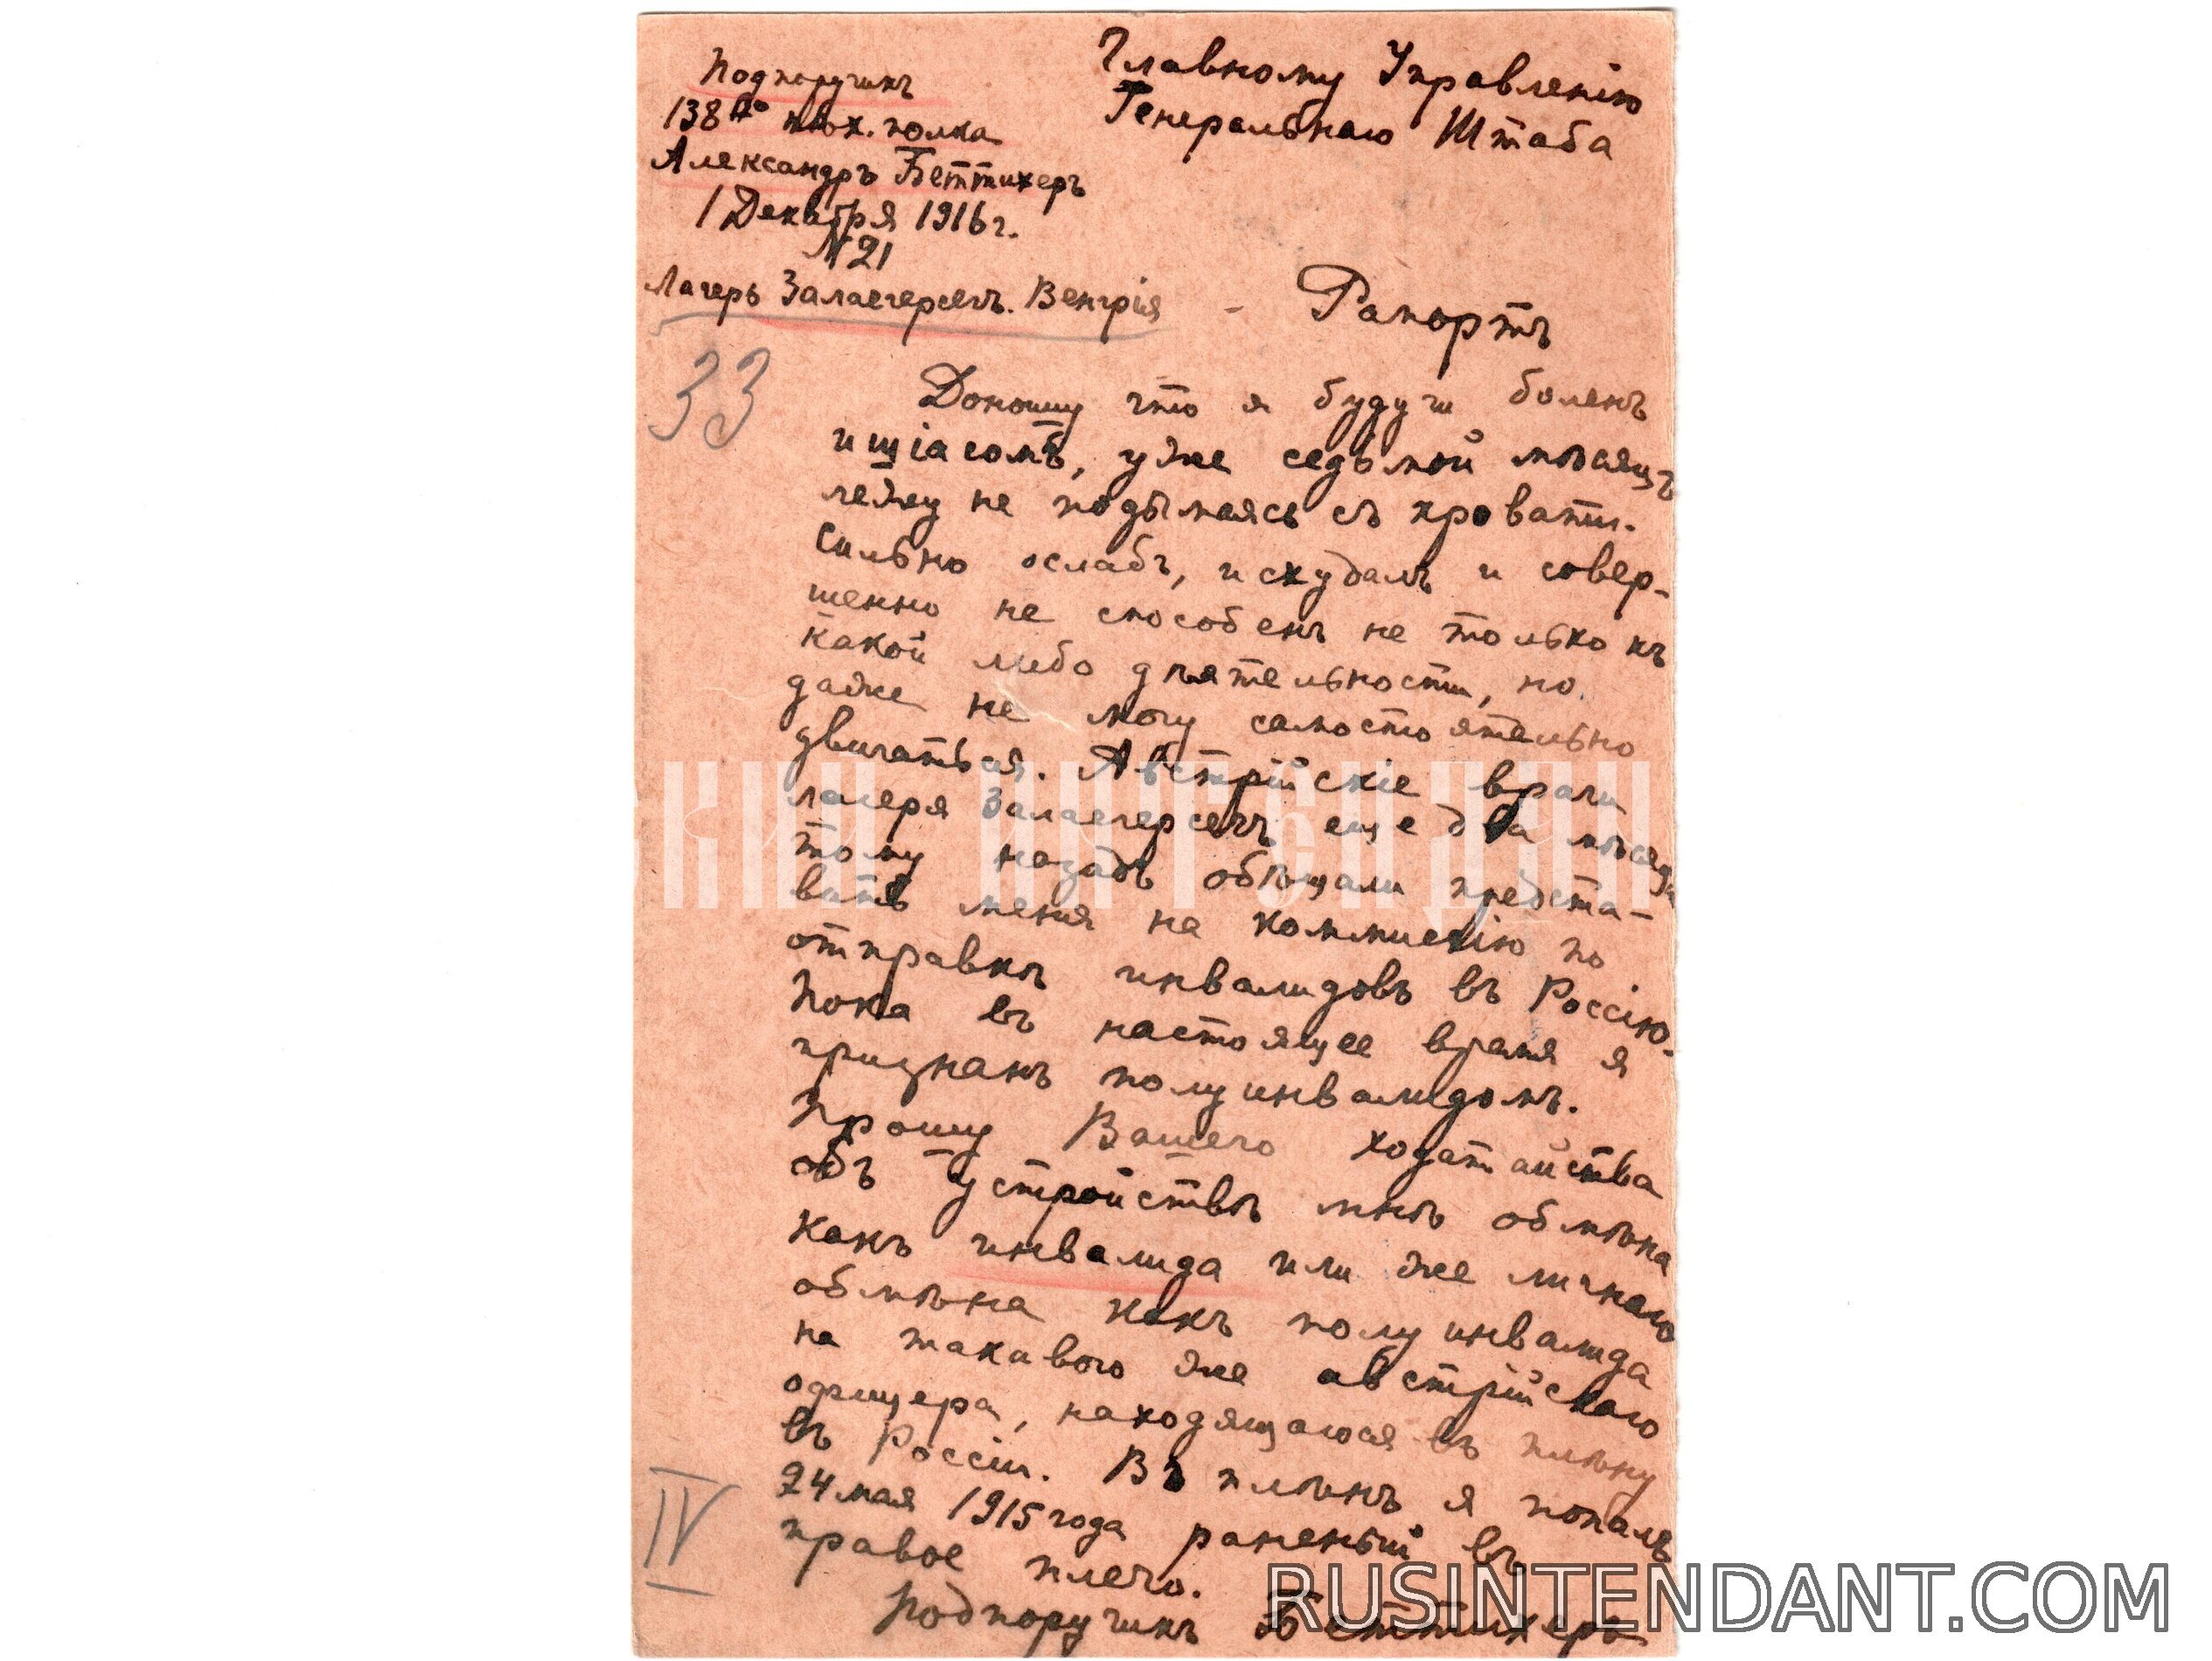 Главному Управленію
Генеральнаго Штаба
Подпоручикъ
138го пѣх. полка
Александръ Беттихеръ
1 Декабря 1916 г.
№ 21
Лагерь Залаегерсегъ. Венгрія
Рапортъ
33
Доношу что я будучи боленъ
ишіасомъ, уже седьмой мѣсяцъ
лежу не подымаясь съ кровати.
Сильно ослабъ, исхудалъ и совер-
шенно не способенъ не только къ
какой либо дѣятельности, но
даже не могу самостоятельно
двигаться. Австрійскіе врачи
лагеря Залаегерсегъ еще два мѣсяца
тому назадъ обѣщали предста-
вить меня на коммиссію по
отправкѣ инвалидовъ въ Россію.
Пока въ настоящее время я
признанъ полуинвалидомъ.
Прошу Вашего ходатайства
объ устройствѣ мнѣ обмѣна
какъ инвалида или же личнаго
обмѣна какъ полуинвалида
на такового же австрійскаго
офицера, находящагося въ плѣну
въ Россіи. Въ плѣнъ я попалъ
24 мая 1915 года раненый въ
правое плечо.
Подпоручикъ Беттихеръ
IV
КИЙ ИНТЕНДАН
RUSINTENDANT.COM